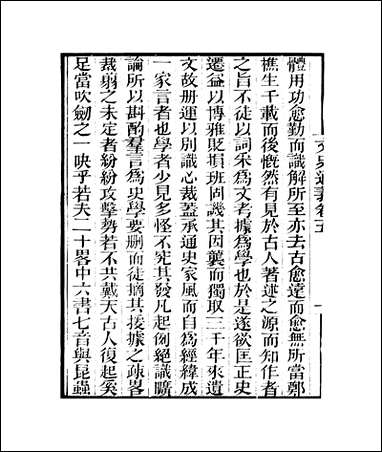 文史通義卷五
一
體用功愈勤而識解所至亦去古愈遠而愈無所當鄭
樵生千載而後慨然有見於古人著述之源而知作者
之旨不徒以詞采爲文考據爲學也於是遂欲匡正史
遷益以博雅貶損班固譏其因襲而獨取三千年來遺
文故册運以別識心裁蓋承通史家風而自爲經緯成
一家言者也學者少見多怪不究其發凡起例絕識曠
論所以斟酌羣言爲史學要刪而徒摘其援據之疎畧
裁翦之未定者紛紛攻擊勢若不共戴天古人復起奚
足當吹劒之一吷乎若夫二十畧中六書七音與昆蟲